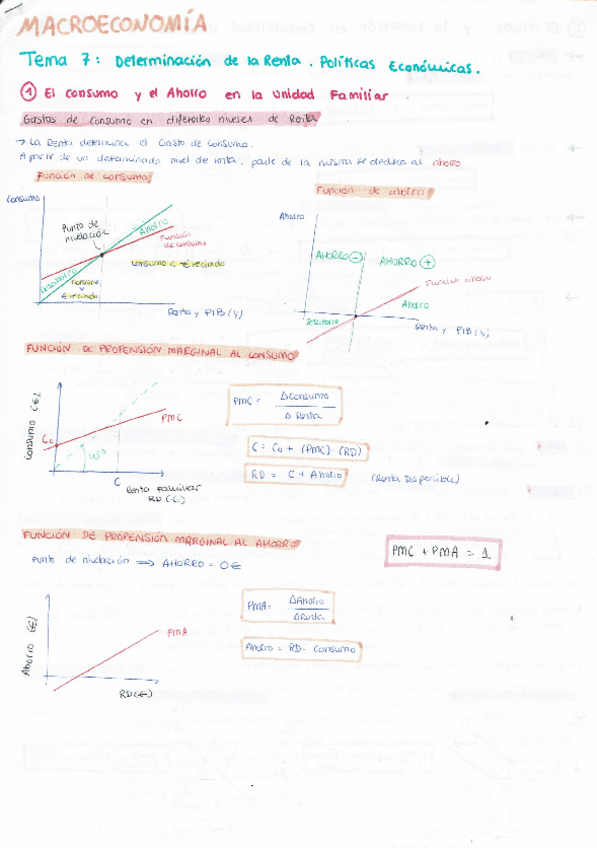 MACROECONOMÍA
Tema 7: Determinación de la Renta. Políticas Económicas.
① El consumo y el Ahorro en la Unidad Familiar
Gastos de consumo en diferentes niveles de Renta
→ La Renta determina el Gasto de Consumo.
A partir de un determinado nivel de renta, parte de la misma se dedica al ahorro
Función de consumo
Función de ahorro
Consumo
Punto de nivelación
Ahorro
Función de consumo
Consumo < € recibido
Desahorro
Consumo
€ recibido
Renta y PIB (Y)
Ahorro
AHORRO ⊖
AHORRO ⊕
Función ahorro
Ahorro
Desahorro
Renta y PIB (Y)
FUNCIÓN DE PROPENSIÓN MARGINAL AL CONSUMO
Consumo (€)
C₀
45°
PMC
C
Renta Familiar
RD (€)
PMC = ΔConsumo / Δ Renta
C = C₀ + (PMC) · (RD)
RD = C + Ahorro
(Renta Disponible)
FUNCIÓN DE PROPENSIÓN MARGINAL AL AHORRO
Punto de nivelación ⇒ AHORRO = 0€
PMC + PMA = 1
Ahorro (€)
PMA
RD (€)
PMA = ΔAhorro / ΔRenta
Ahorro = RD - Consumo